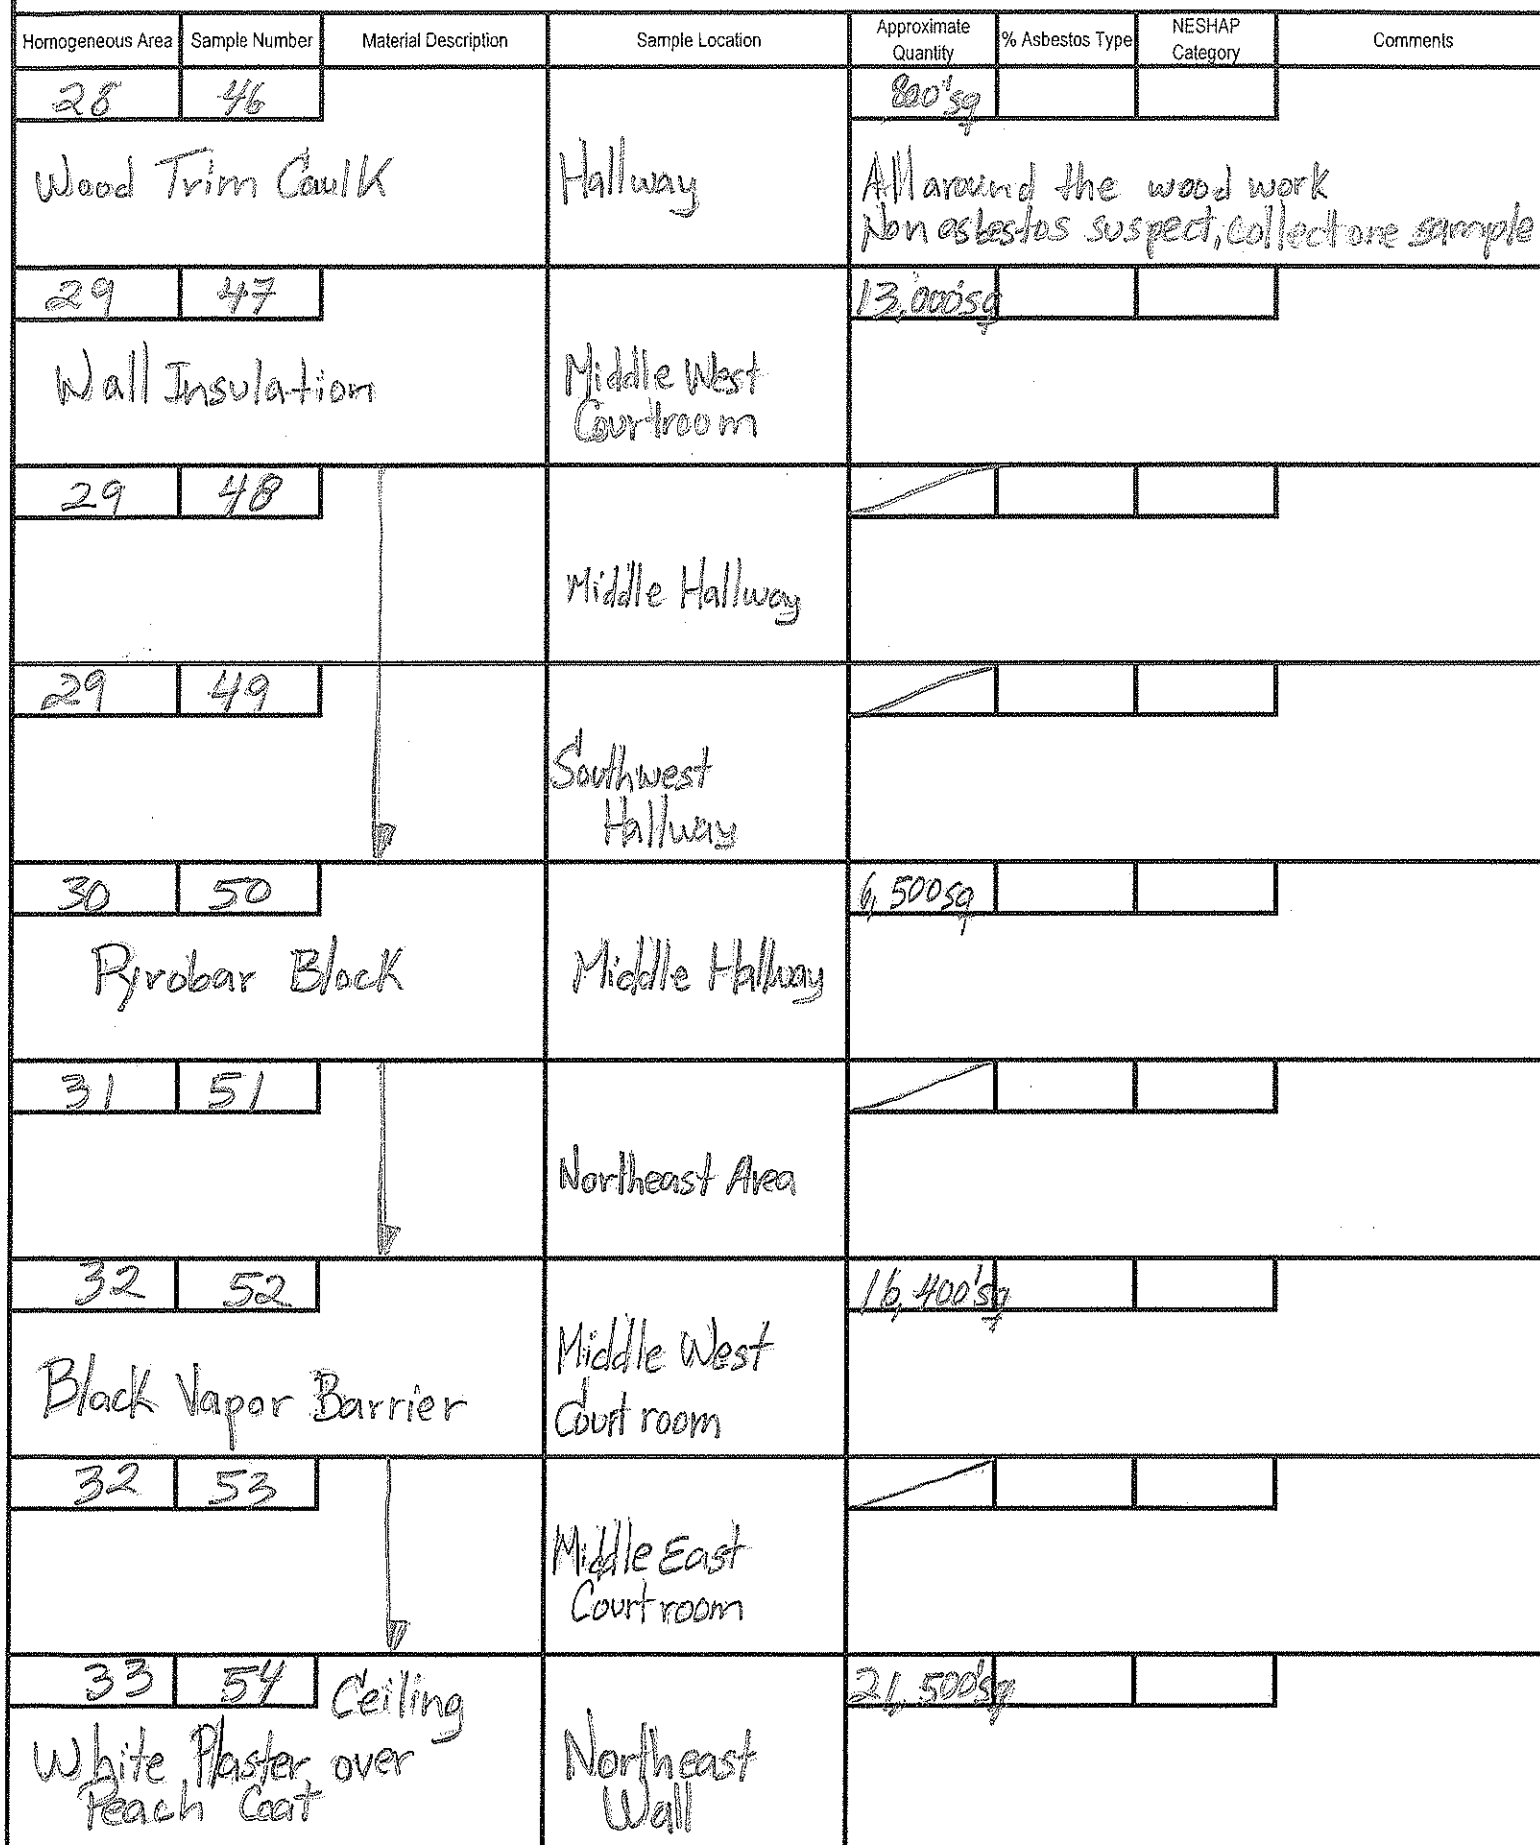 Homogeneous Area Sample Number Material Description Sample Location Approximate Quantity % Asbestos Type NESHAP Category Comments
28 46 800'sq
Wood Trim Caulk Hallway All around the wood work
Non asbestos suspect, collect one sample
29 47 13,000'sq
Wall Insulation Middle West
Courtroom
29 48
Middle Hallway
29 49
Southwest
Hallway
30 50 6,500sq
Pyrobar Block Middle Hallway
31 51
Northeast Area
32 52 16,400'sq
Black Vapor Barrier Middle West
Court room
32 53
Middle East
Court room
33 54 Ceiling 21,500'sq
White Plaster over Northeast
Peach Coat Wall